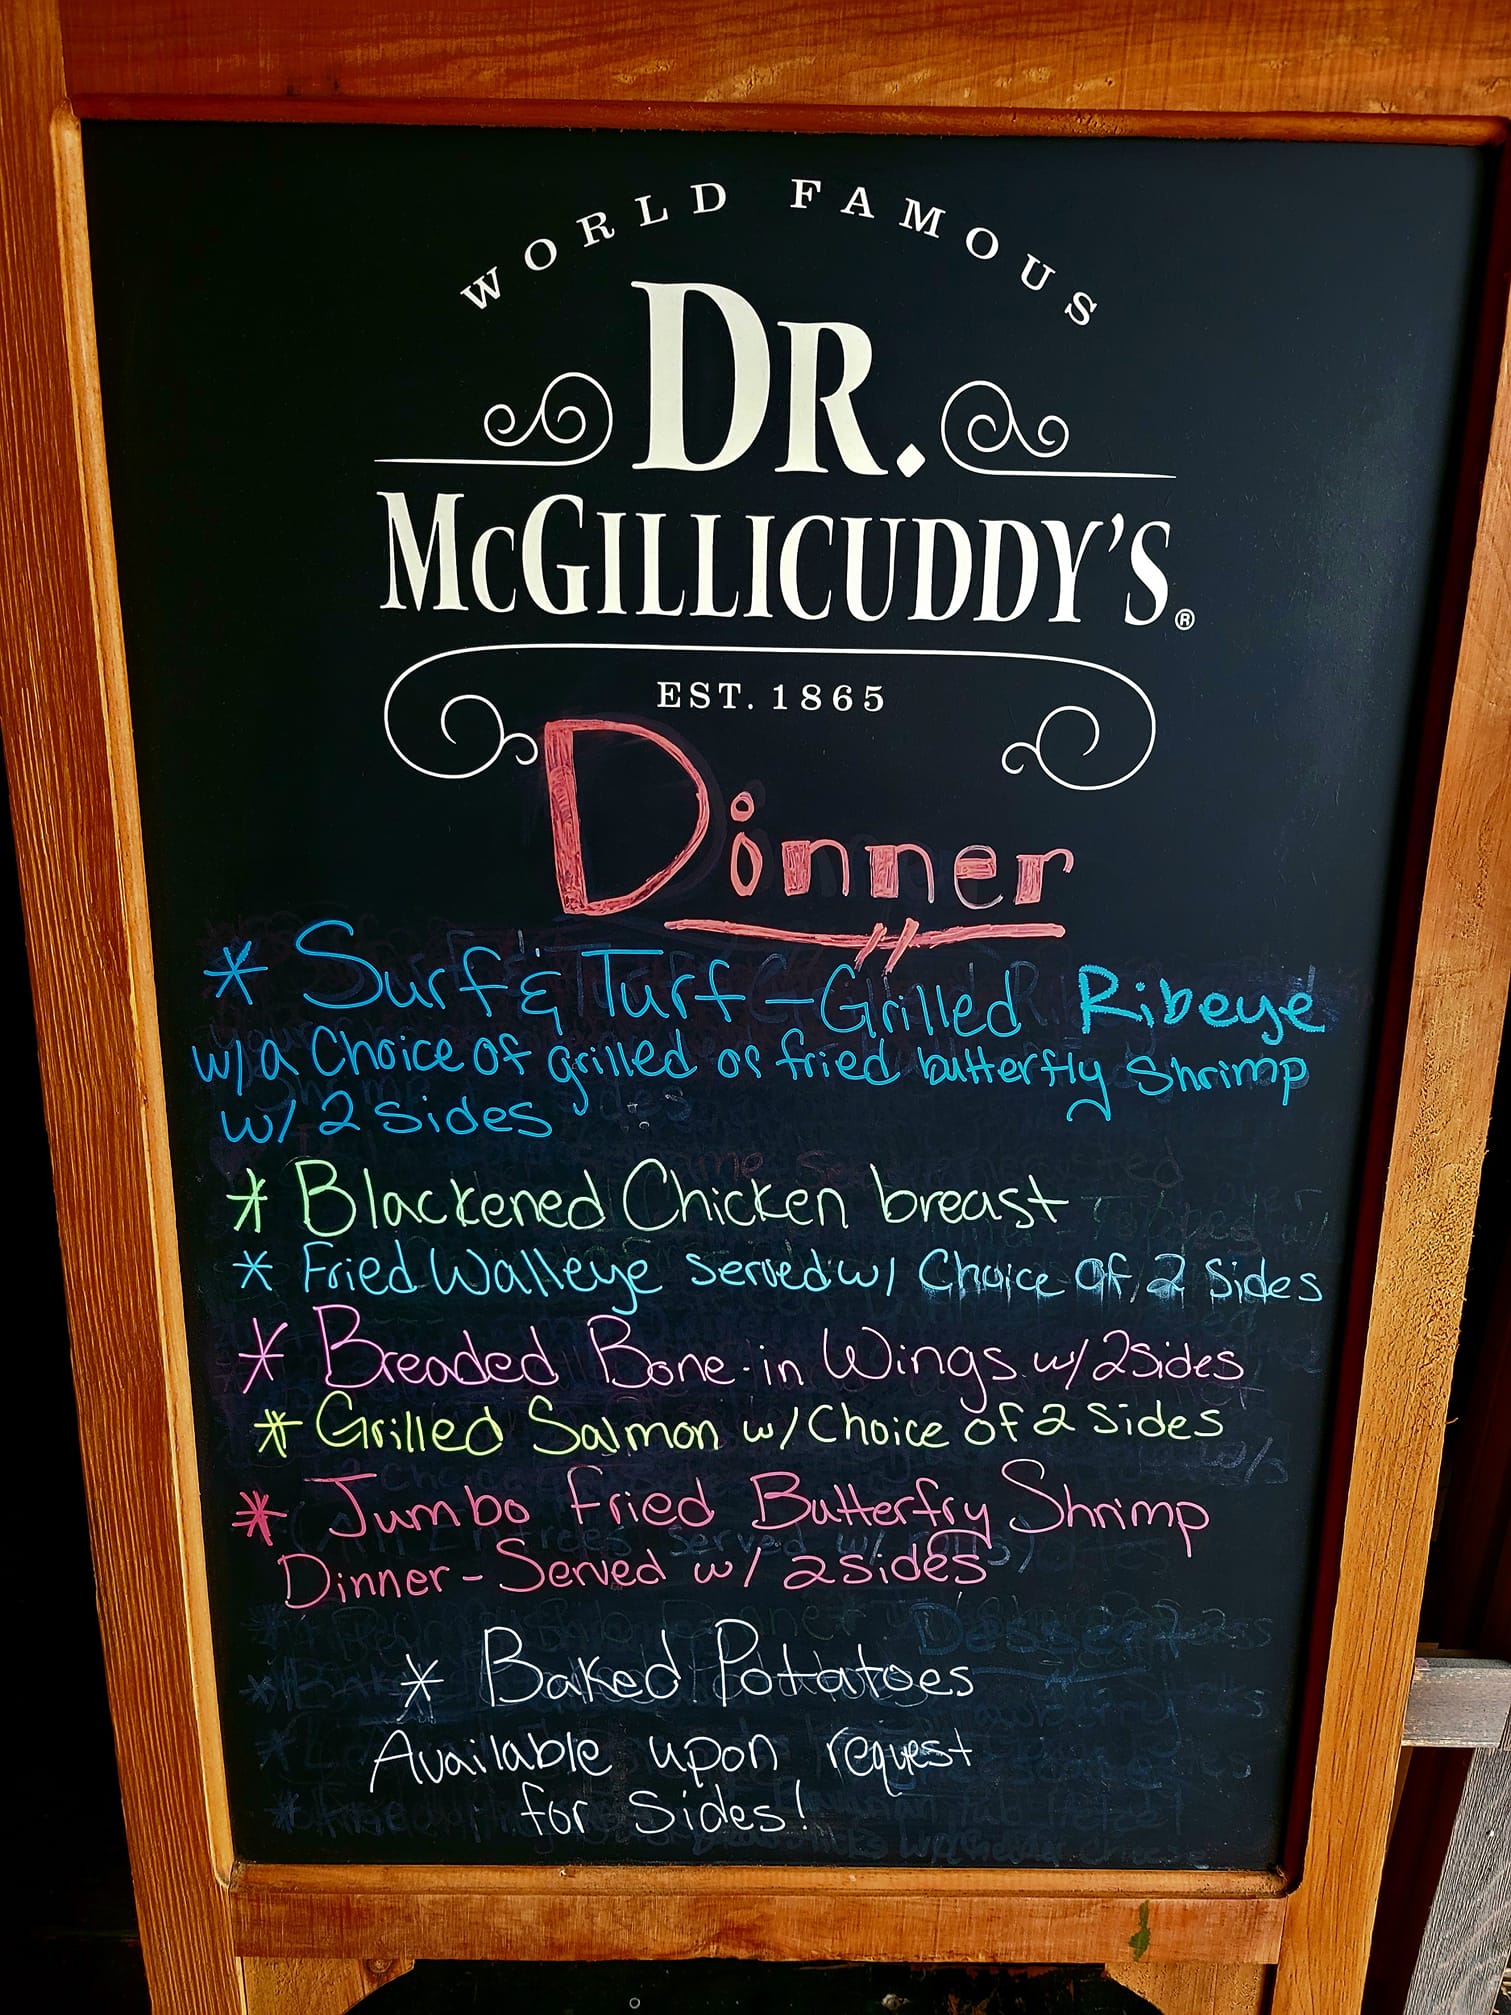 WORLD FAMOUS
DR.
McGILLICUDDY'S®
EST. 1865
Dinner
* Surf & Turf - Grilled Ribeye
w/a Choice of grilled or fried butterfly Shrimp
w/ 2 sides
* Blackened Chicken breast
* Fried Walleye served w/ Choice of 2 sides
* Breaded Bone-in Wings w/ 2 sides
* Grilled Salmon w/ Choice of 2 sides
* Jumbo Fried Butterfry Shrimp
Dinner - Served w/ 2 sides
* Baked Potatoes
Available upon request
for Sides!